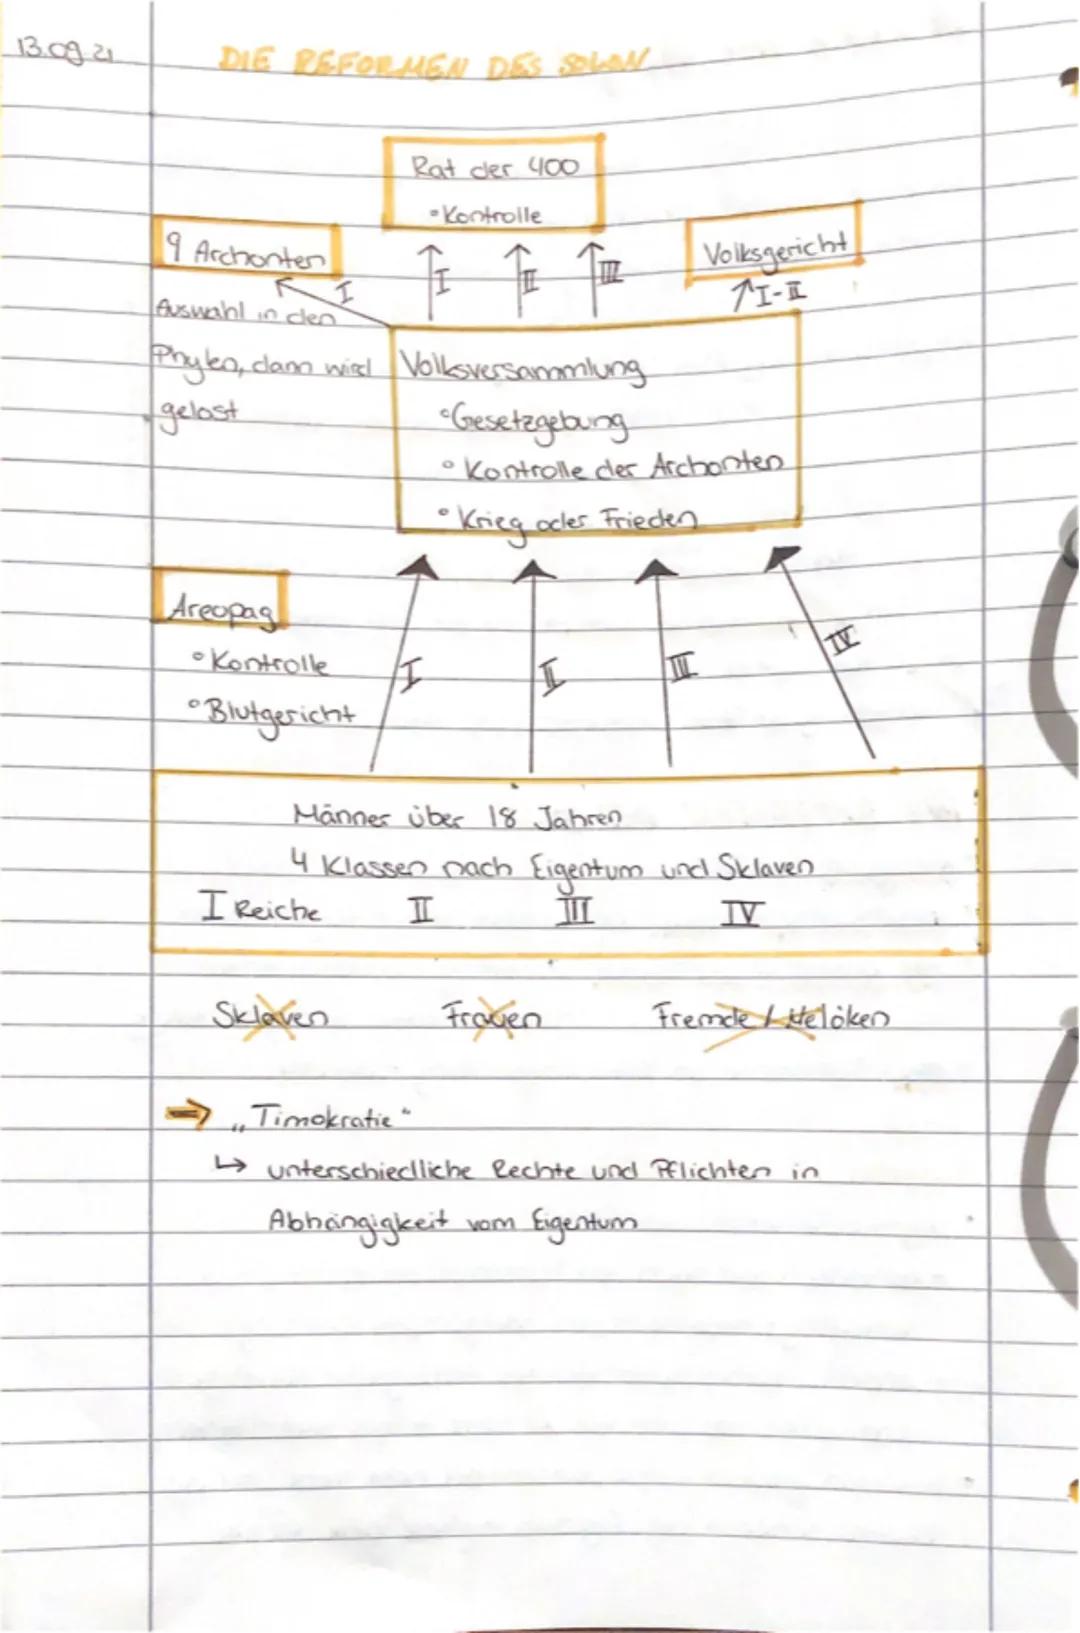 13.09.21
DIE REFORMEN DES SOLON
Rat der 400
• Kontrolle
9 Archonten
Volksgericht
I
I
II
III
I-II
Auswahl in den
Phylen, dann wird
gelost
Volksversammlung
• Gesetzgebung
• Kontrolle der Archonten
• Krieg oder Frieden
Areopag
• Kontrolle
• Blutgericht
I
II
III
IV
Männer über 18 Jahren
4 Klassen nach Eigentum und Sklaven
I Reiche II III IV
Sklaven Frauen Fremde / Metöken
⇒ „Timokratie“
↳ unterschiedliche Rechte und Pflichten in
Abhängigkeit vom Eigentum